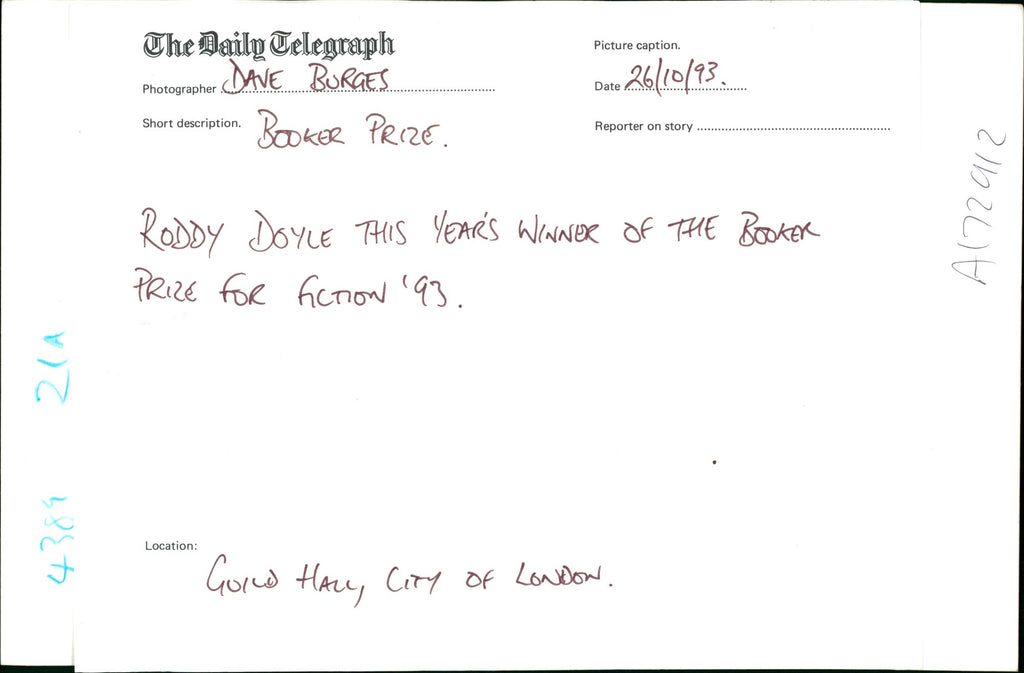 The Daily Telegraph
Picture caption.
Photographer DAVE BURGES
Date 26/10/93.
Short description. BOOKER PRIZE.
Reporter on story
RODDY DOYLE THIS YEAR'S WINNER OF THE BOOKER
PRIZE FOR FICTION '93.
Location:
GUILD HALL, CITY OF LONDON.
A172912
21A
4389